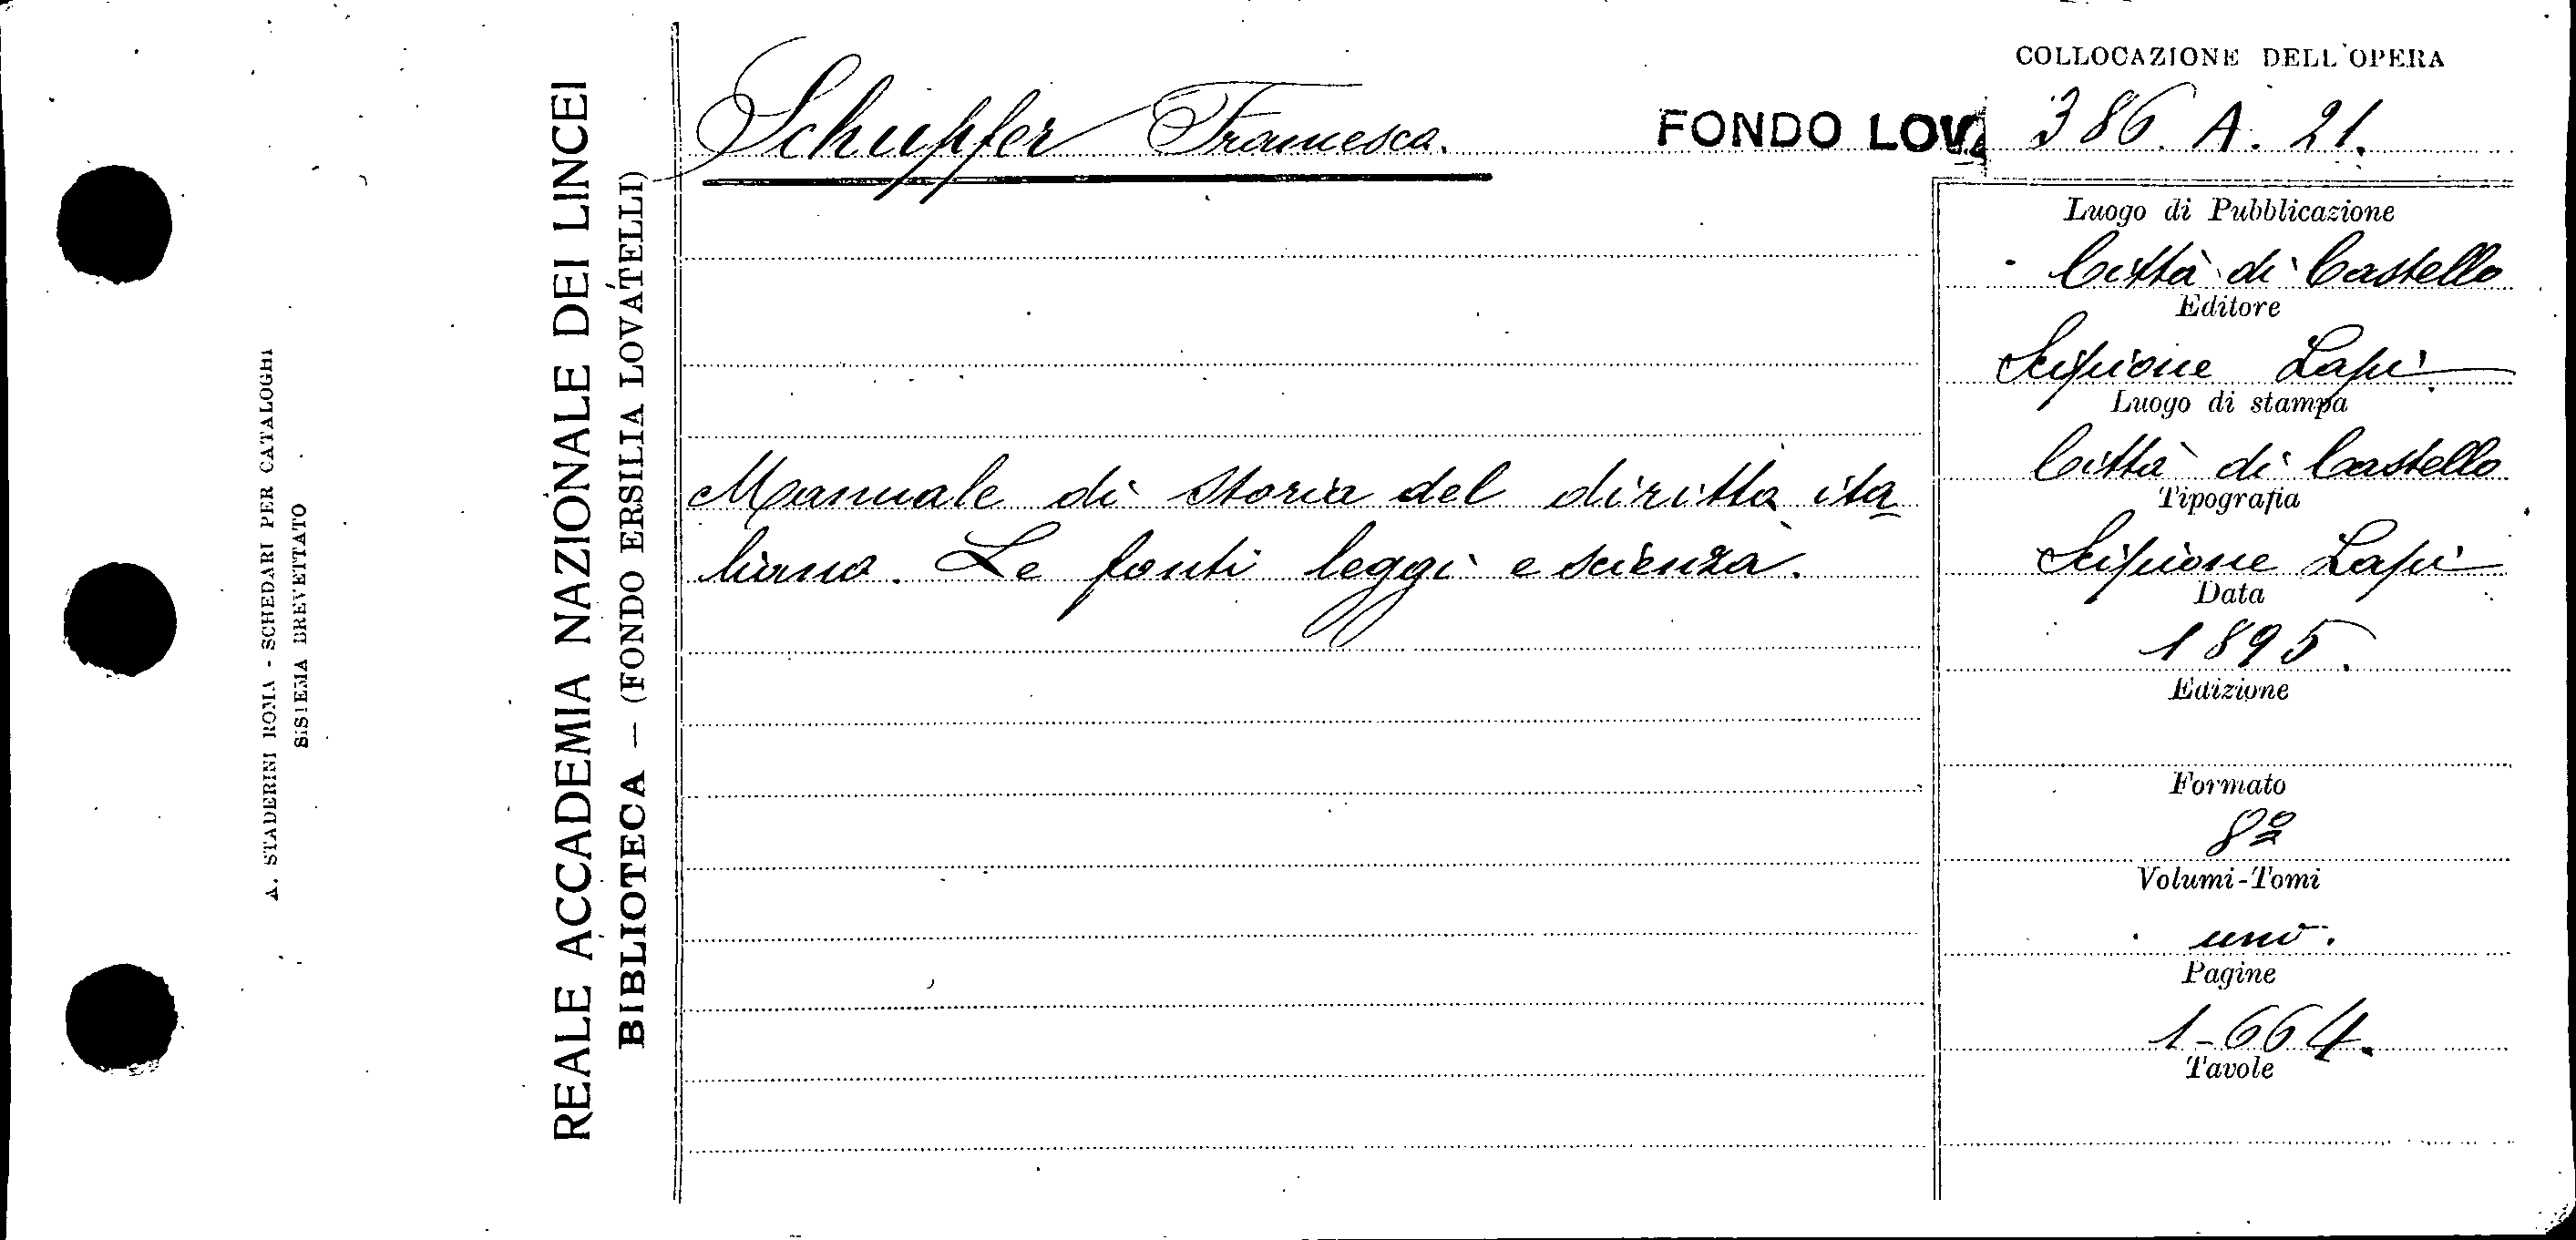 COLLOCAZIONE DELL'OPERA
Schupfer Francesca.
FONDO LOV. 386. A. 21.
Manuale di storia del diritto ita
liano. Le fonti leggi e scienza.
Luogo di Pubblicazione
Città di Castello
Editore
Scipione Lapi
Luogo di stampa
Città di Castello
Tipografia
Scipione Lapi
Data
1895.
Edizione
Formato
8º
Volumi-Tomi
uno.
Pagine
1-664.
Tavole
REALE ACCADEMIA NAZIONALE DEI LINCEI
BIBLIOTECA — (FONDO ERSILIA LOVATELLI)
A. STADERINI ROMA - SCHEDARI PER CATALOGHI
SISTEMA BREVETTATO